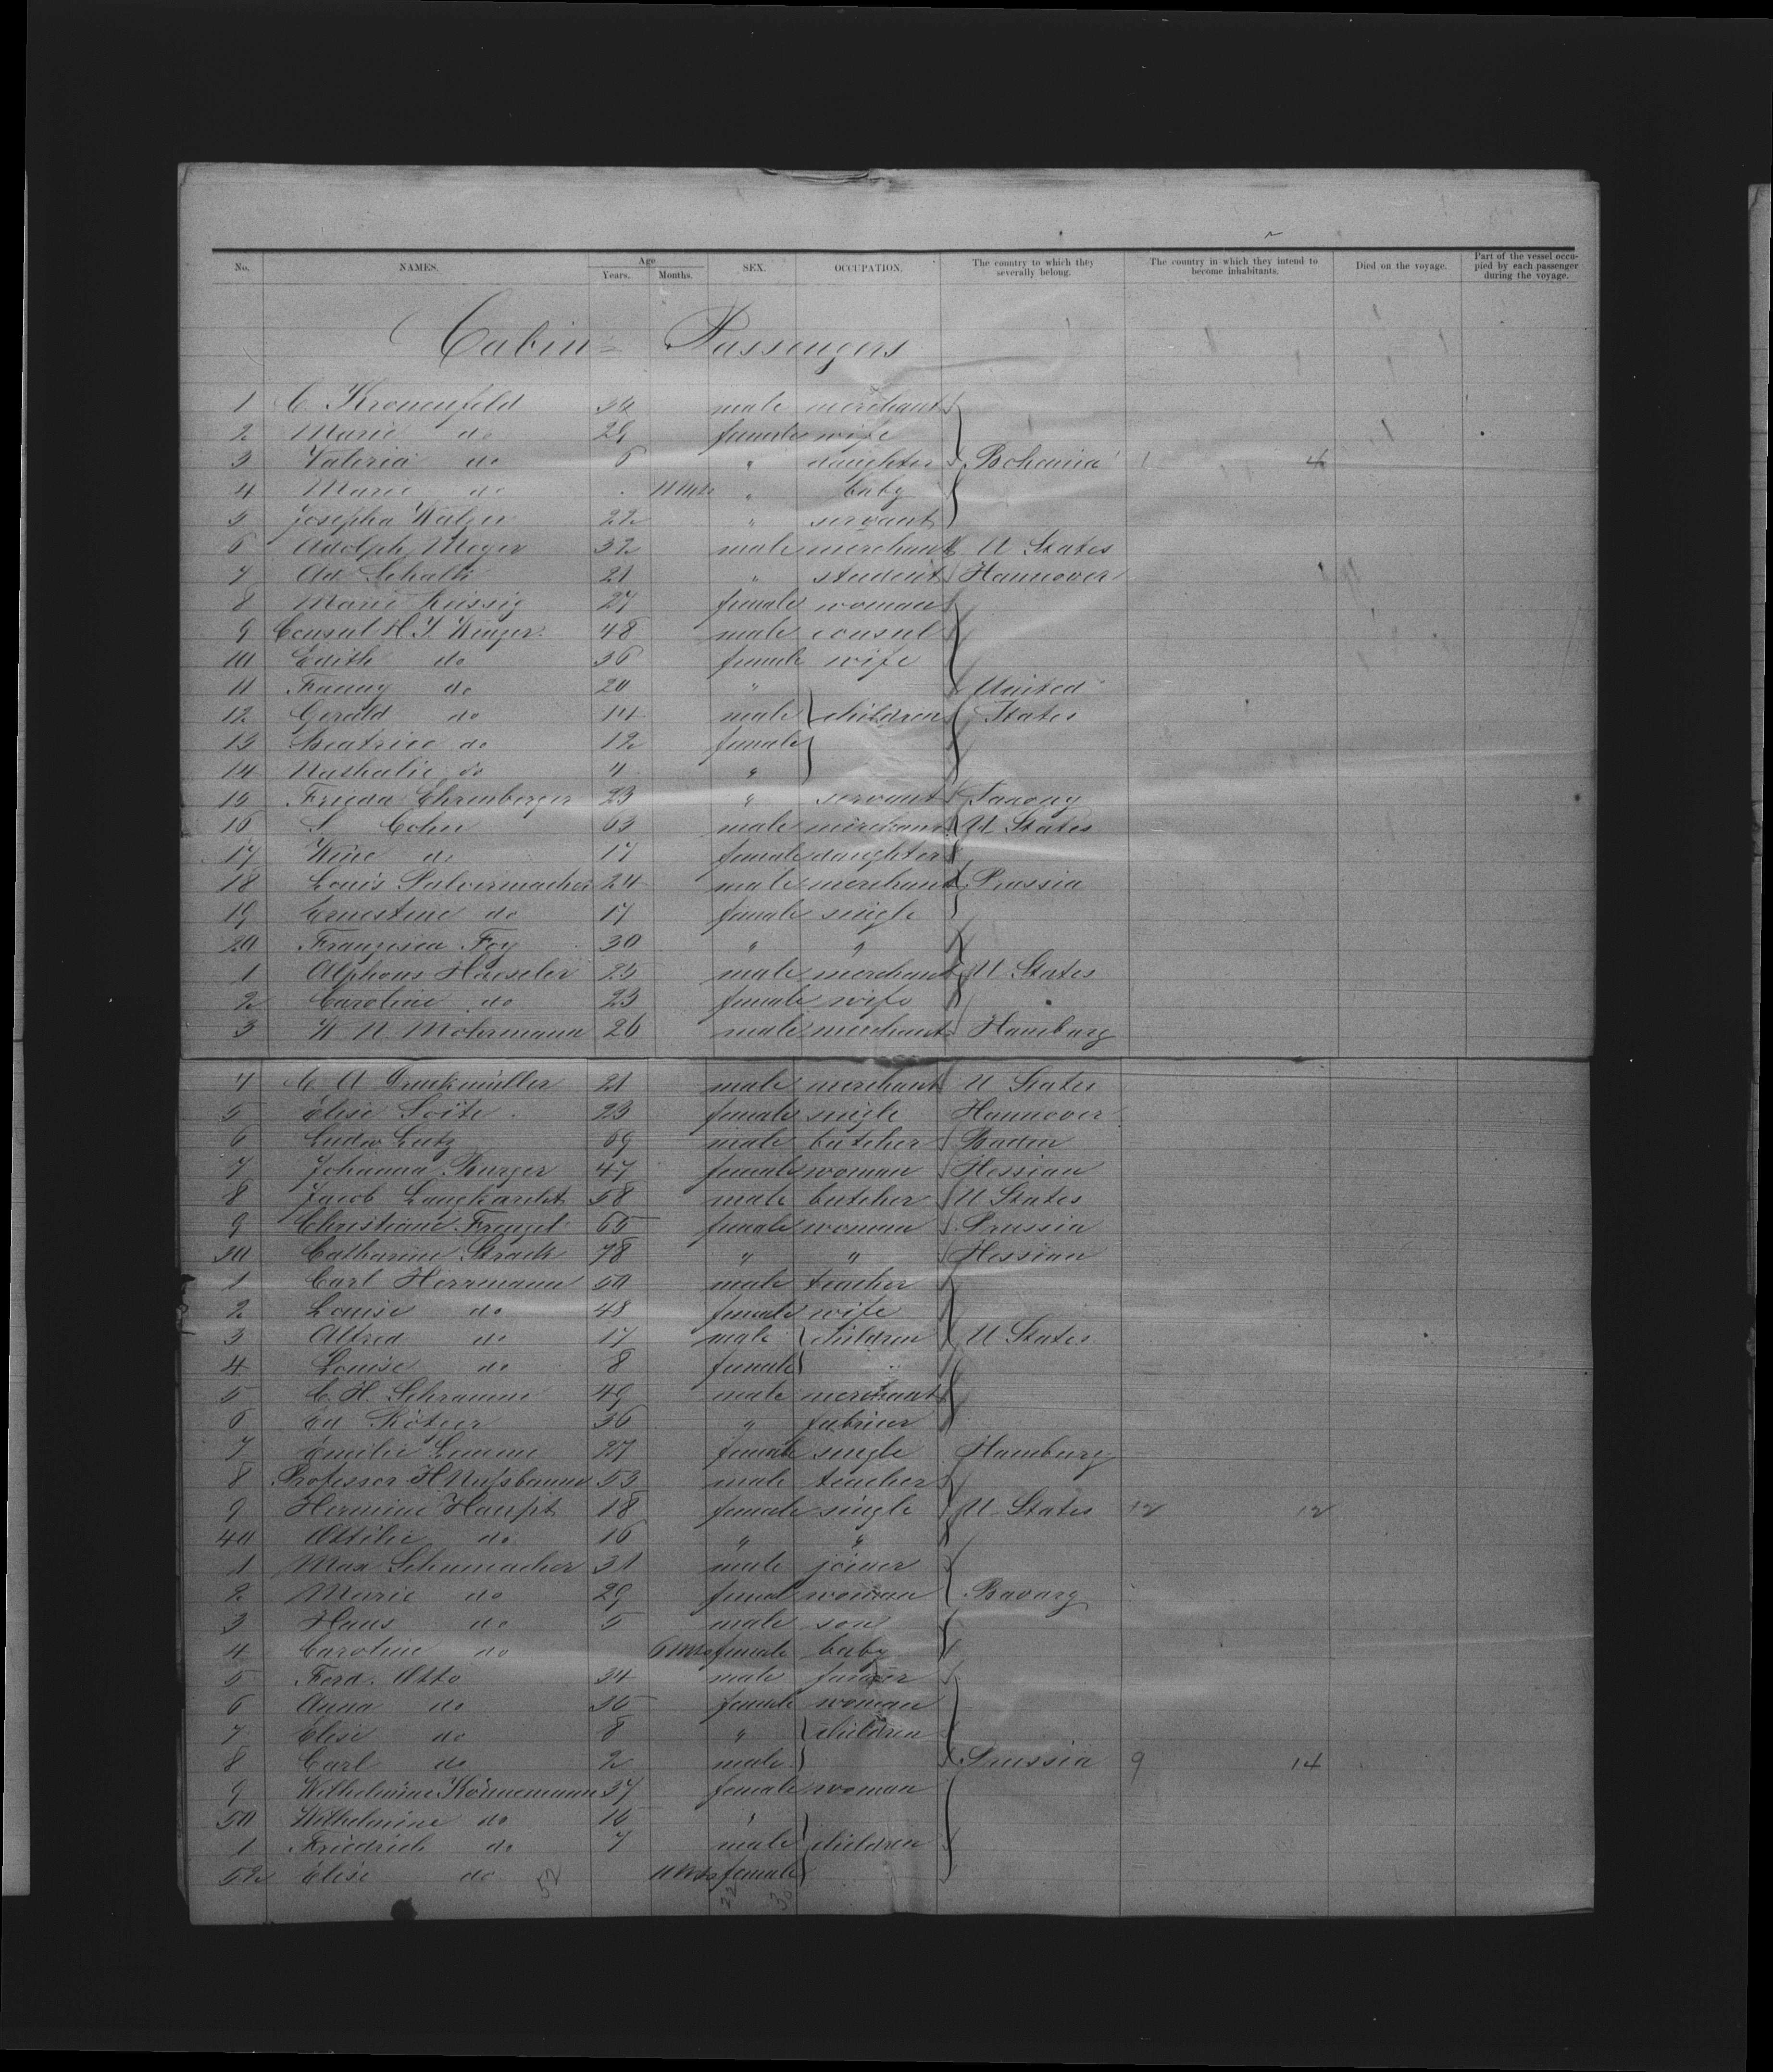 No. NAMES. Age Years. Months. SEX. OCCUPATION. The country to which they severally belong. The country in which they intend to become inhabitants. Died on the voyage. Part of the vessel occupied by each passenger during the voyage.
Cabin = Passengers
1 C. Kronenfeld 34 male merchant
2 Marie do 29 female wife
3 Valeria do 6 " daughter Bohemia 1 4
4 Marie do 11 Mts " baby
5 Josepha 22 " servant
6 Adolph Meyer 32 male merchant U States
7 Ad. Schalk 21 " student Hannover
8 Marie 27 female woman
9 Consul H. 48 male consul
10 Edith do 36 female wife
11 Fanny do 20 " United
12 Gerald do 14 male children States
13 Beatrice do 12 female
14 Nathalie do 4 "
15 Frieda Ehrenberger 23 " servant Saxony
16 S Cohn 63 male merchant U States
17 do 17 female daughter
18 Louis Pulvermacher 24 male merchant Prussia
19 Ernestine do 17 female single
20 Franzisca Foy 30 " "
1 Alphons Haeseler 25 male merchant U States
2 Caroline do 23 female wife
3 W N Mohrmann 26 male merchant Hamburg
4 C A Druckmüller 21 male merchant U States
5 Elise 23 female single Hannover
6 Ludw Lutz 69 male butcher Baden
7 Johanna Burger 47 female woman Hessian
8 Jacob Langhardt 58 male butcher U States
9 Christiane 65 female woman Prussia
30 Catharine Strack 78 " " Hessian
1 Carl Herrmann 50 male teacher
2 Louise do 48 female wife
3 Alfred do 17 male children U States
4 Louise do 8 female
5 C. H. Schramm 49 male merchant
6 Ed 36 "
7 Emilie 27 female single Hamburg
8 Professor H Nussbaum 53 male teacher
9 Hermine Haupt 18 female single U States 12 12
40 Ottilie do 16 " "
1 Max Schumacher 31 male joiner
2 Marie do 29 female woman Bavary
3 Hans do 5 male son
4 Caroline do 6 Mts female baby
5 Ferd. Otto 34 male farmer
6 Anna do 36 female woman
7 Elise do 8 " children
8 Carl do 2 male Prussia 9 14
9 Wilhelmine Könnemann 37 female woman
50 Wilhelmine do 16 "
1 Friedrich do 7 male children
52 Elise do 11 Mts female
52 22 30